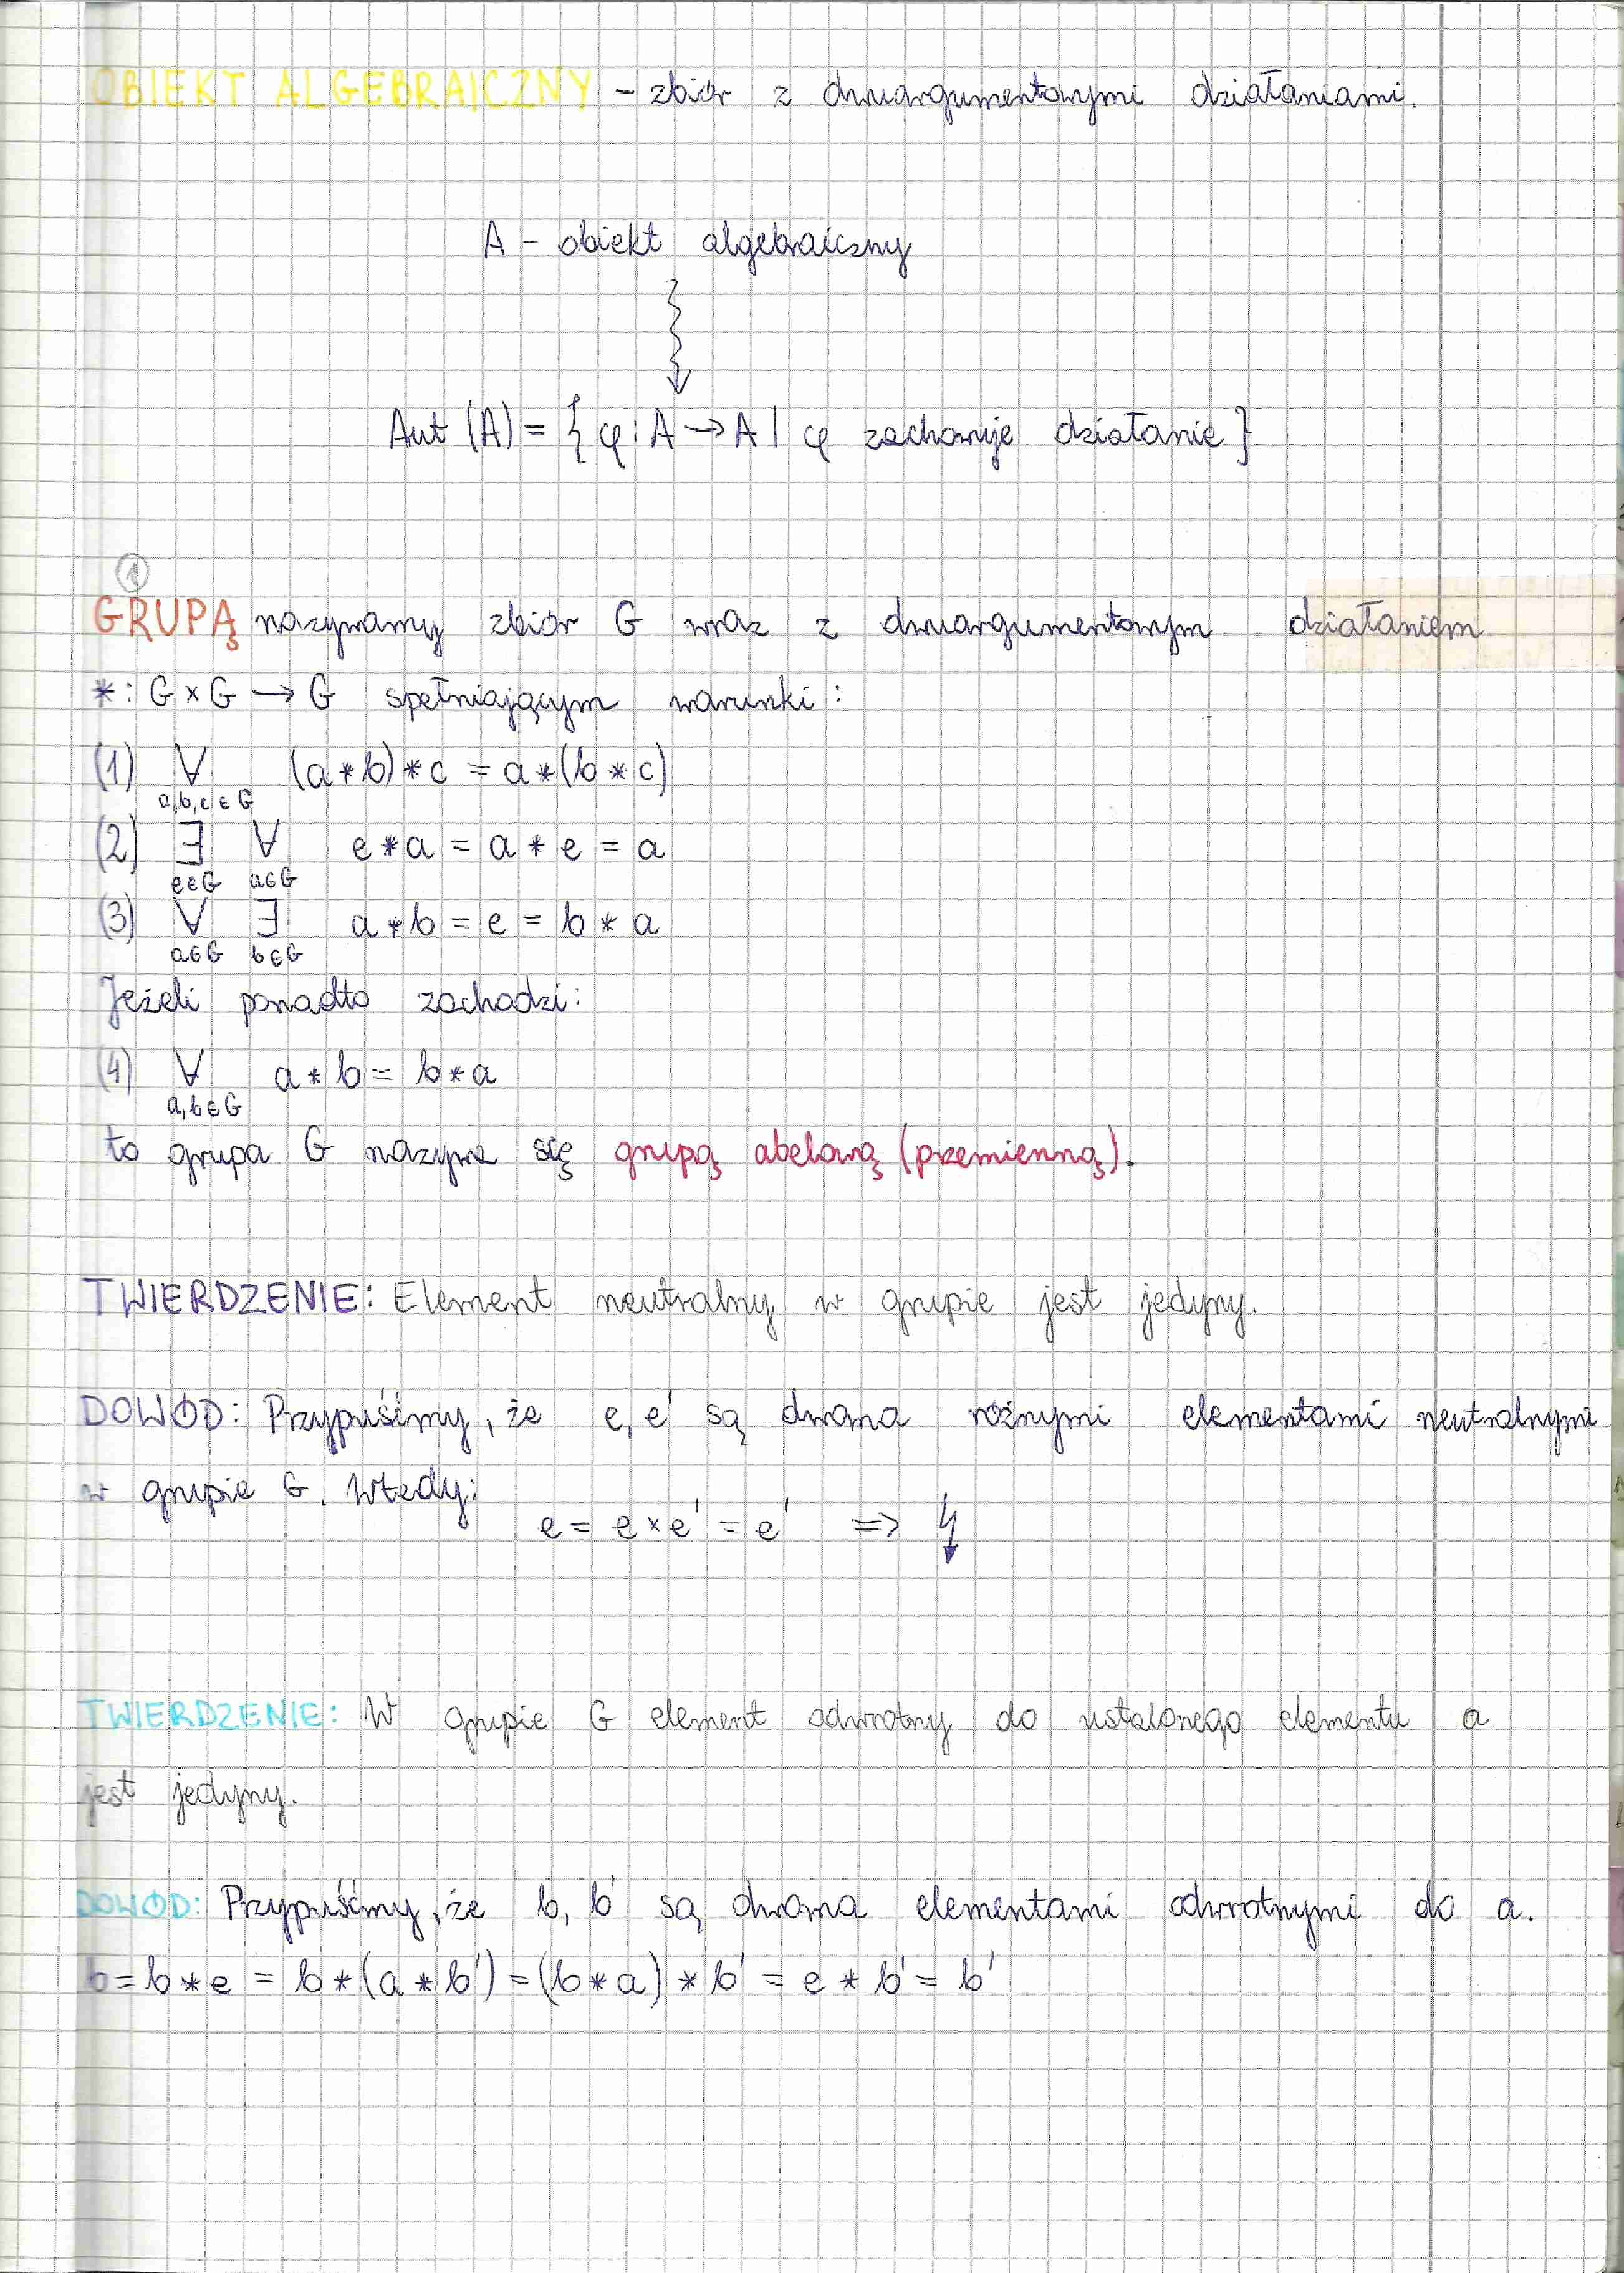 OBIEKT ALGEBRAICZNY - zbiór z dwuargumentowymi działaniami.
A - obiekt algebraiczny
Aut (A) = { φ : A → A | φ zachowuje działanie }
1
GRUPĄ nazywamy zbiór G wraz z dwuargumentowym działaniem
* : G × G → G spełniającym warunki :
(1) ∀ (a * b) * c = a * (b * c)
a,b,c ∈ G
(2) ∃ ∀ e * a = a * e = a
e∈G a∈G
(3) ∀ ∃ a * b = e = b * a
a∈G b∈G
Jeżeli ponadto zachodzi:
(4) ∀ a * b = b * a
a,b∈G
to grupa G nazywa się grupą abelową (przemienną).
TWIERDZENIE: Element neutralny w grupie jest jedyny.
DOWÓD: Przypuśćmy, że e, e' są dwoma różnymi elementami neutralnymi
w grupie G. Wtedy:
e = e × e' = e' ⇒ ↯
TWIERDZENIE: W grupie G element odwrotny do ustalonego elementu a
jest jedyny.
DOWÓD: Przypuśćmy, że b, b' są dwoma elementami odwrotnymi do a.
b = b * e = b * (a * b') = (b * a) * b' = e * b' = b'